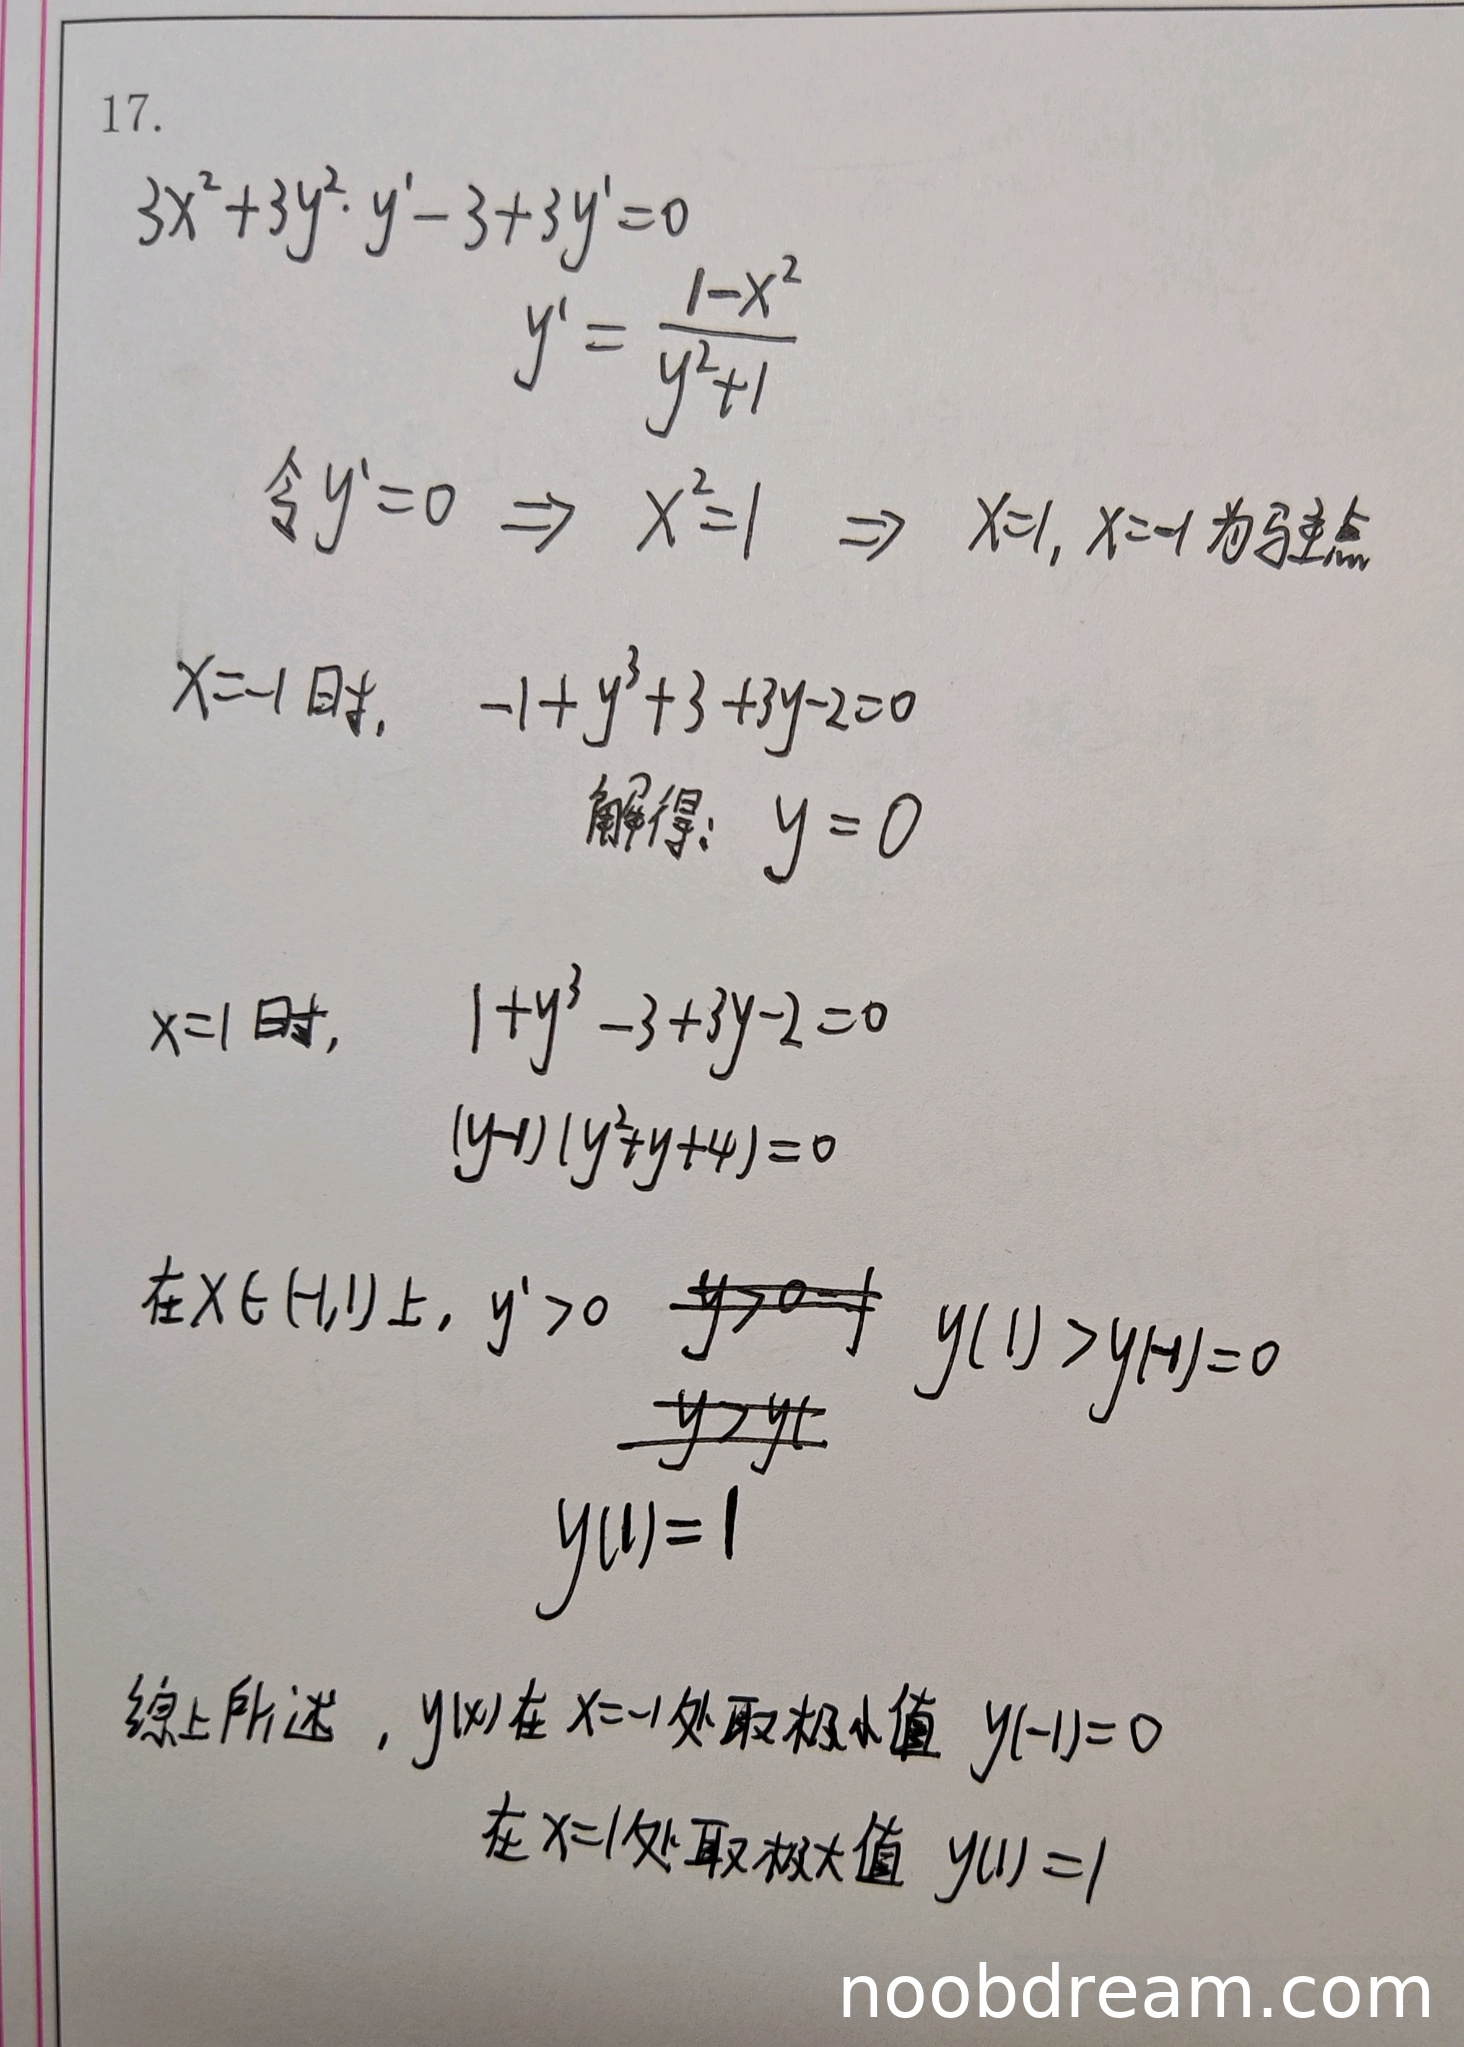 17.
3x²+3y²·y'-3+3y'=0
y'=\frac{1-x²}{y²+1}
令y'=0 ⇒ x²=1 ⇒ x=1, x=-1为驻点
x=-1时, -1+y³+3+3y-2=0
解得: y=0
x=1时, 1+y³-3+3y-2=0
(y-1)(y²+y+4)=0
在x∈(-1,1)上, y'>0 y(1)>y(-1)=0
y>y(
y(1)=1
综上所述, y(x)在x=-1处取极小值 y(-1)=0
在x=1处取极大值 y(1)=1
noobdream.com